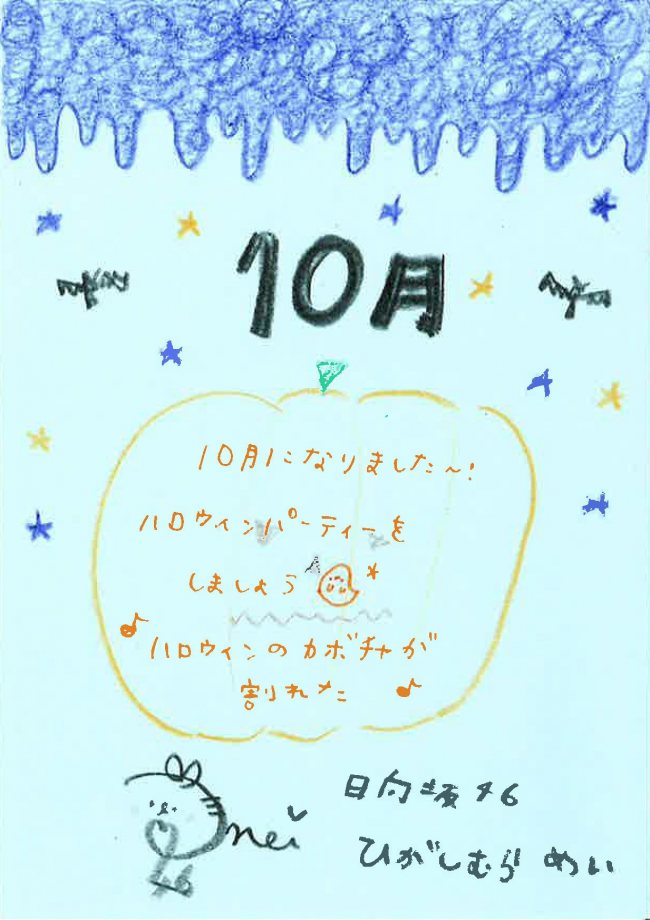 10月
10月になりました〜!
ハロウィンパーティーを
しましょう
ハロウィンのカボチャが
割れた
mei
46
日向坂46
ひがしむら めい